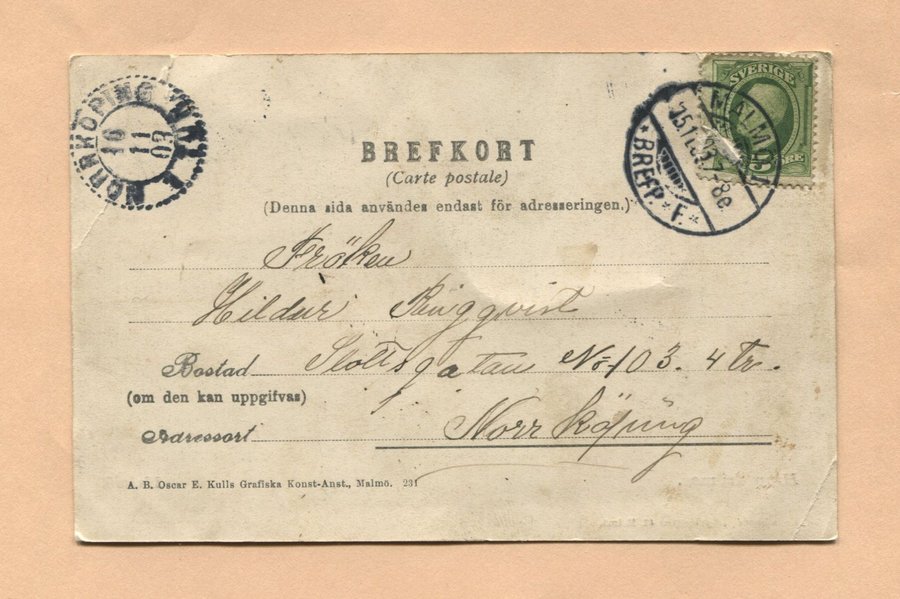 NORRKÖPING
16
11
03
SVERIGE
MALMÖ 1
BREFP. F.
BREFKORT
(Carte postale)
(Denna sida användes endast för adresseringen.)
Fröken
Hildur Ringqvist
Bostad Slottsgatan No 103. 4 tr.
(om den kan uppgifvas)
Adressort Norrköping
A. B. Oscar E. Kulls Grafiska Konst-Anst., Malmö. 231